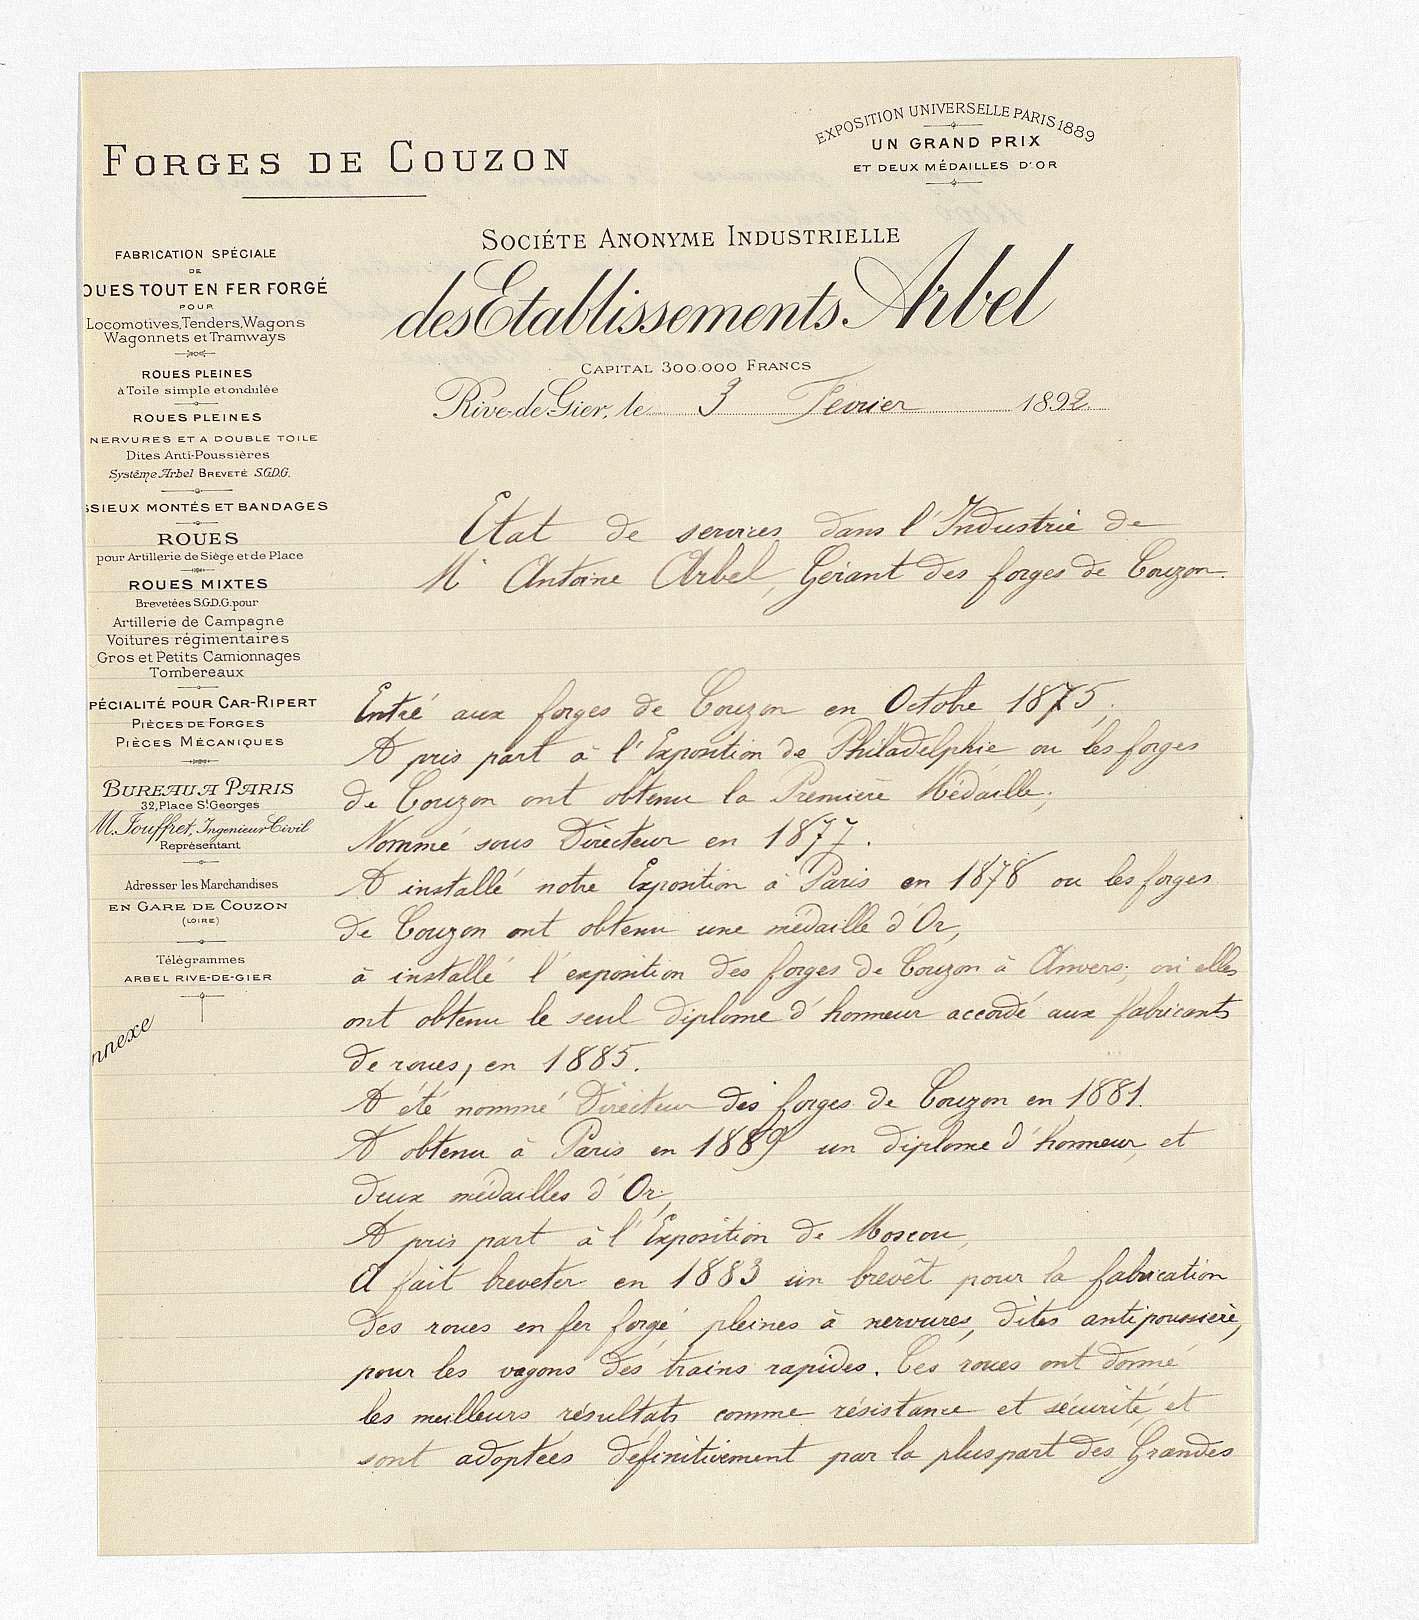 FORGES DE COUZON
EXPOSITION UNIVERSELLE PARIS 1889
UN GRAND PRIX
ET DEUX MÉDAILLES D'OR
SOCIÉTE ANONYME INDUSTRIELLE
des Etablissements Arbel
CAPITAL 300.000 FRANCS
Rive-de-Gier, le 3 Fevrier 1892
FABRICATION SPÉCIALE
DE
OUES TOUT EN FER FORGÉ
POUR
Locomotives, Tenders, Wagons
Wagonnets et Tramways
ROUES PLEINES
à Toile simple et ondulée
ROUES PLEINES
NERVURES ET A DOUBLE TOILE
Dites Anti-Poussières
Système Arbel BREVETÉ S.G.D.G.
SSIEUX MONTÉS ET BANDAGES
ROUES
pour Artillerie de Siège et de Place
ROUES MIXTES
Brevetées S.G.D.G. pour
Artillerie de Campagne
Voitures régimentaires
Gros et Petits Camionnages
Tombereaux
PÉCIALITÉ POUR CAR-RIPERT
PIÈCES DE FORGES
PIÈCES MÉCANIQUES
BUREAU A PARIS
32, Place St Georges
M. Jouffret, Ingenieur Civil
Représentant
Adresser les Marchandises
EN GARE DE COUZON
(LOIRE)
Télégrammes
ARBEL RIVE-DE-GIER
nnexe
Etat de services dans l'Industrie de
Mr Antoine Arbel, Gérant des forges de Couzon.
Entré aux forges de Couzon en Octobre 1875;
A pris part à l'Exposition de Philadelphie ou les forges
de Couzon ont obtenu la Première Médaille;
Nommé sous Directeur en 1877.
A installé notre Exposition à Paris en 1878 ou les forges
de Couzon ont obtenu une médaille d'Or,
à installé l'exposition des forges de Couzon à Anvers; où elles
ont obtenu le seul diplome d'honneur accordé aux fabricants
de roues, en 1885.
A été nommé Directeur des forges de Couzon en 1881.
A obtenu à Paris en 1889 un diplome d'honneur, et
deux médailles d'Or,
A pris part à l'Exposition de Moscou,
A fait breveter en 1883 un brevêt pour la fabrication
des roues en fer forgé pleines à nervures, dites antipoussière,
pour les vagons des trains rapides. Ces roues ont donné
les meilleurs résultats comme résistance et sécurité et
sont adoptées définitivement par la pluspart des Grandes